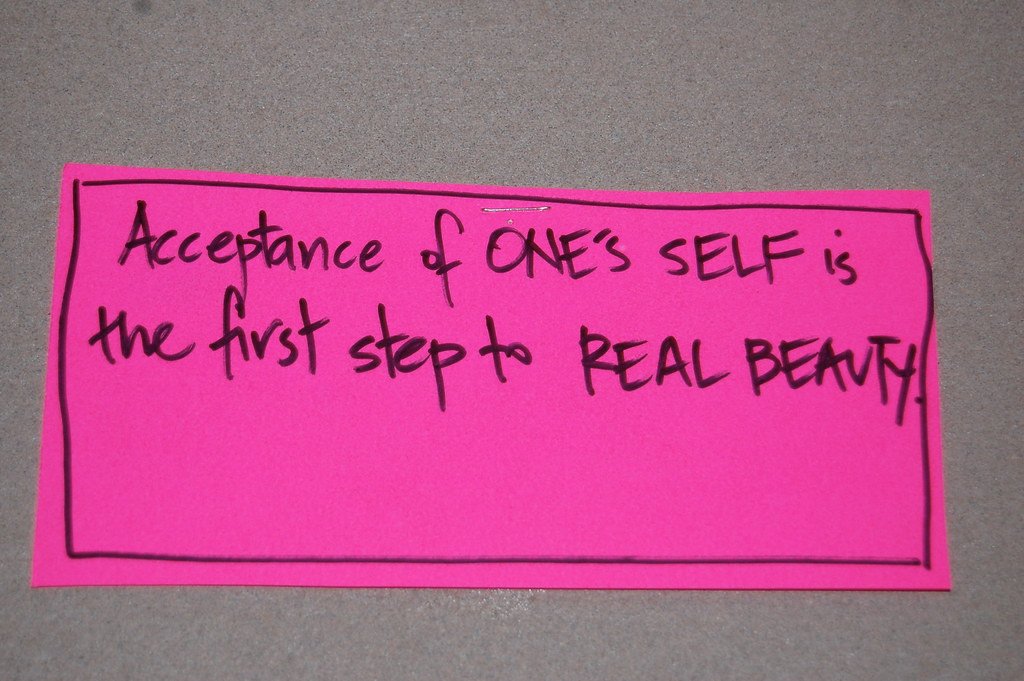 Acceptance of ONE'S SELF is
the first step to REAL BEAUTY.